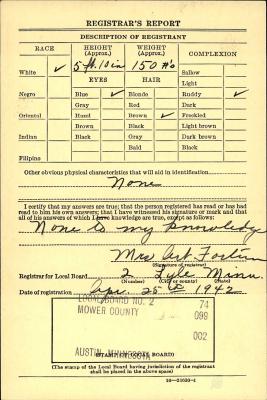 REGISTRAR'S REPORT
DESCRIPTION OF REGISTRANT
RACE HEIGHT (Approx.) WEIGHT (Approx.) COMPLEXION
White ✓ 5 ft. 10 in 150 #s Sallow
EYES HAIR Light
Negro Blue ✓ Blonde Ruddy ✓
Gray Red Dark
Oriental Hazel Brown ✓ Freckled
Brown Black Light brown
Indian Black Gray Dark brown
Bald Black
Filipino
Other obvious physical characteristics that will aid in identification
None
I certify that my answers are true; that the person registered has read or has had
read to him his own answers; that I have witnessed his signature or mark and that
all of his answers of which I have knowledge are true, except as follows:
None to my knowledge
Mrs Art
(Signature of registrar)
Registrar for Local Board 2 Lyle Minn.
(Number) (City or county) (State)
Date of registration Apr. 25 1942
LOCAL BOARD NO. 2 74
MOWER COUNTY 099
002
AUSTIN, MINNESOTA
(STAMP OF LOCAL BOARD)
(The stamp of the Local Board having jurisdiction of the registrant
shall be placed in the above space)